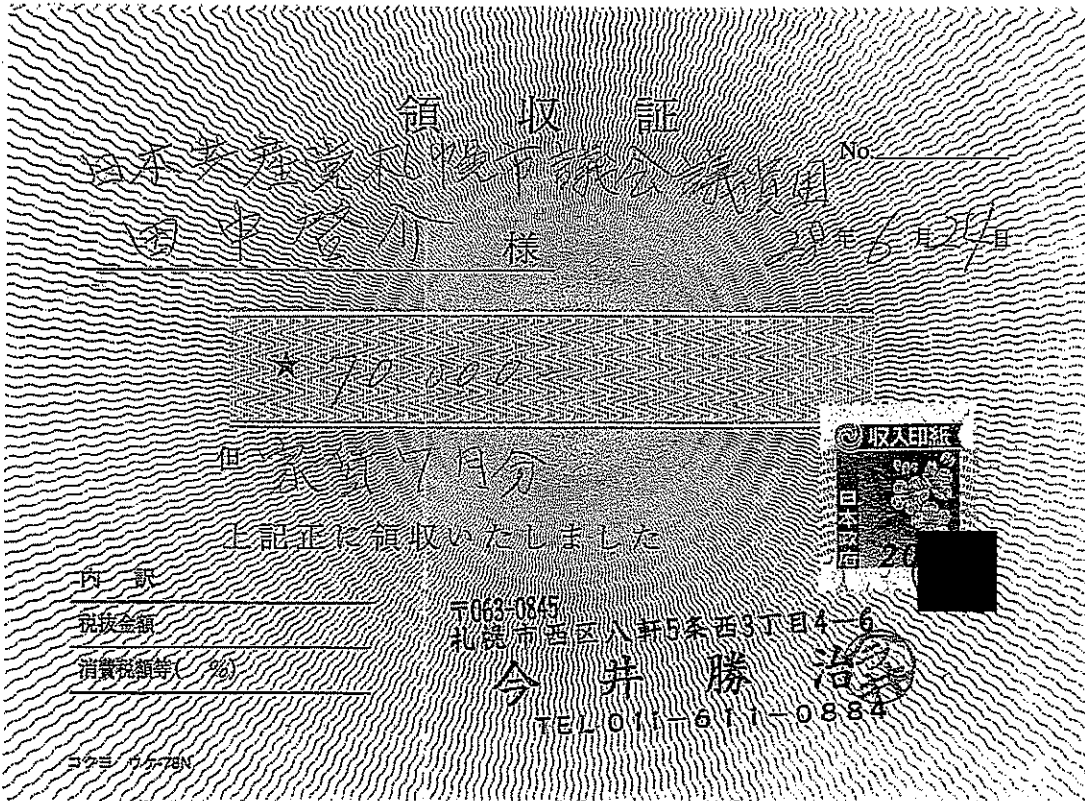 領収証
No.
日本共産党札幌市議会議員団
田中啓介 様
29年6月24日
★ 70,000-
但 家賃7月分
上記正に領収いたしました
収入印紙
日本政府
内訳
税抜金額
消費税額等( %)
〒063-0845
札幌市西区八軒5条西3丁目4-6
今井勝治
TEL 011-611-0884
コクヨ ウケ-78N